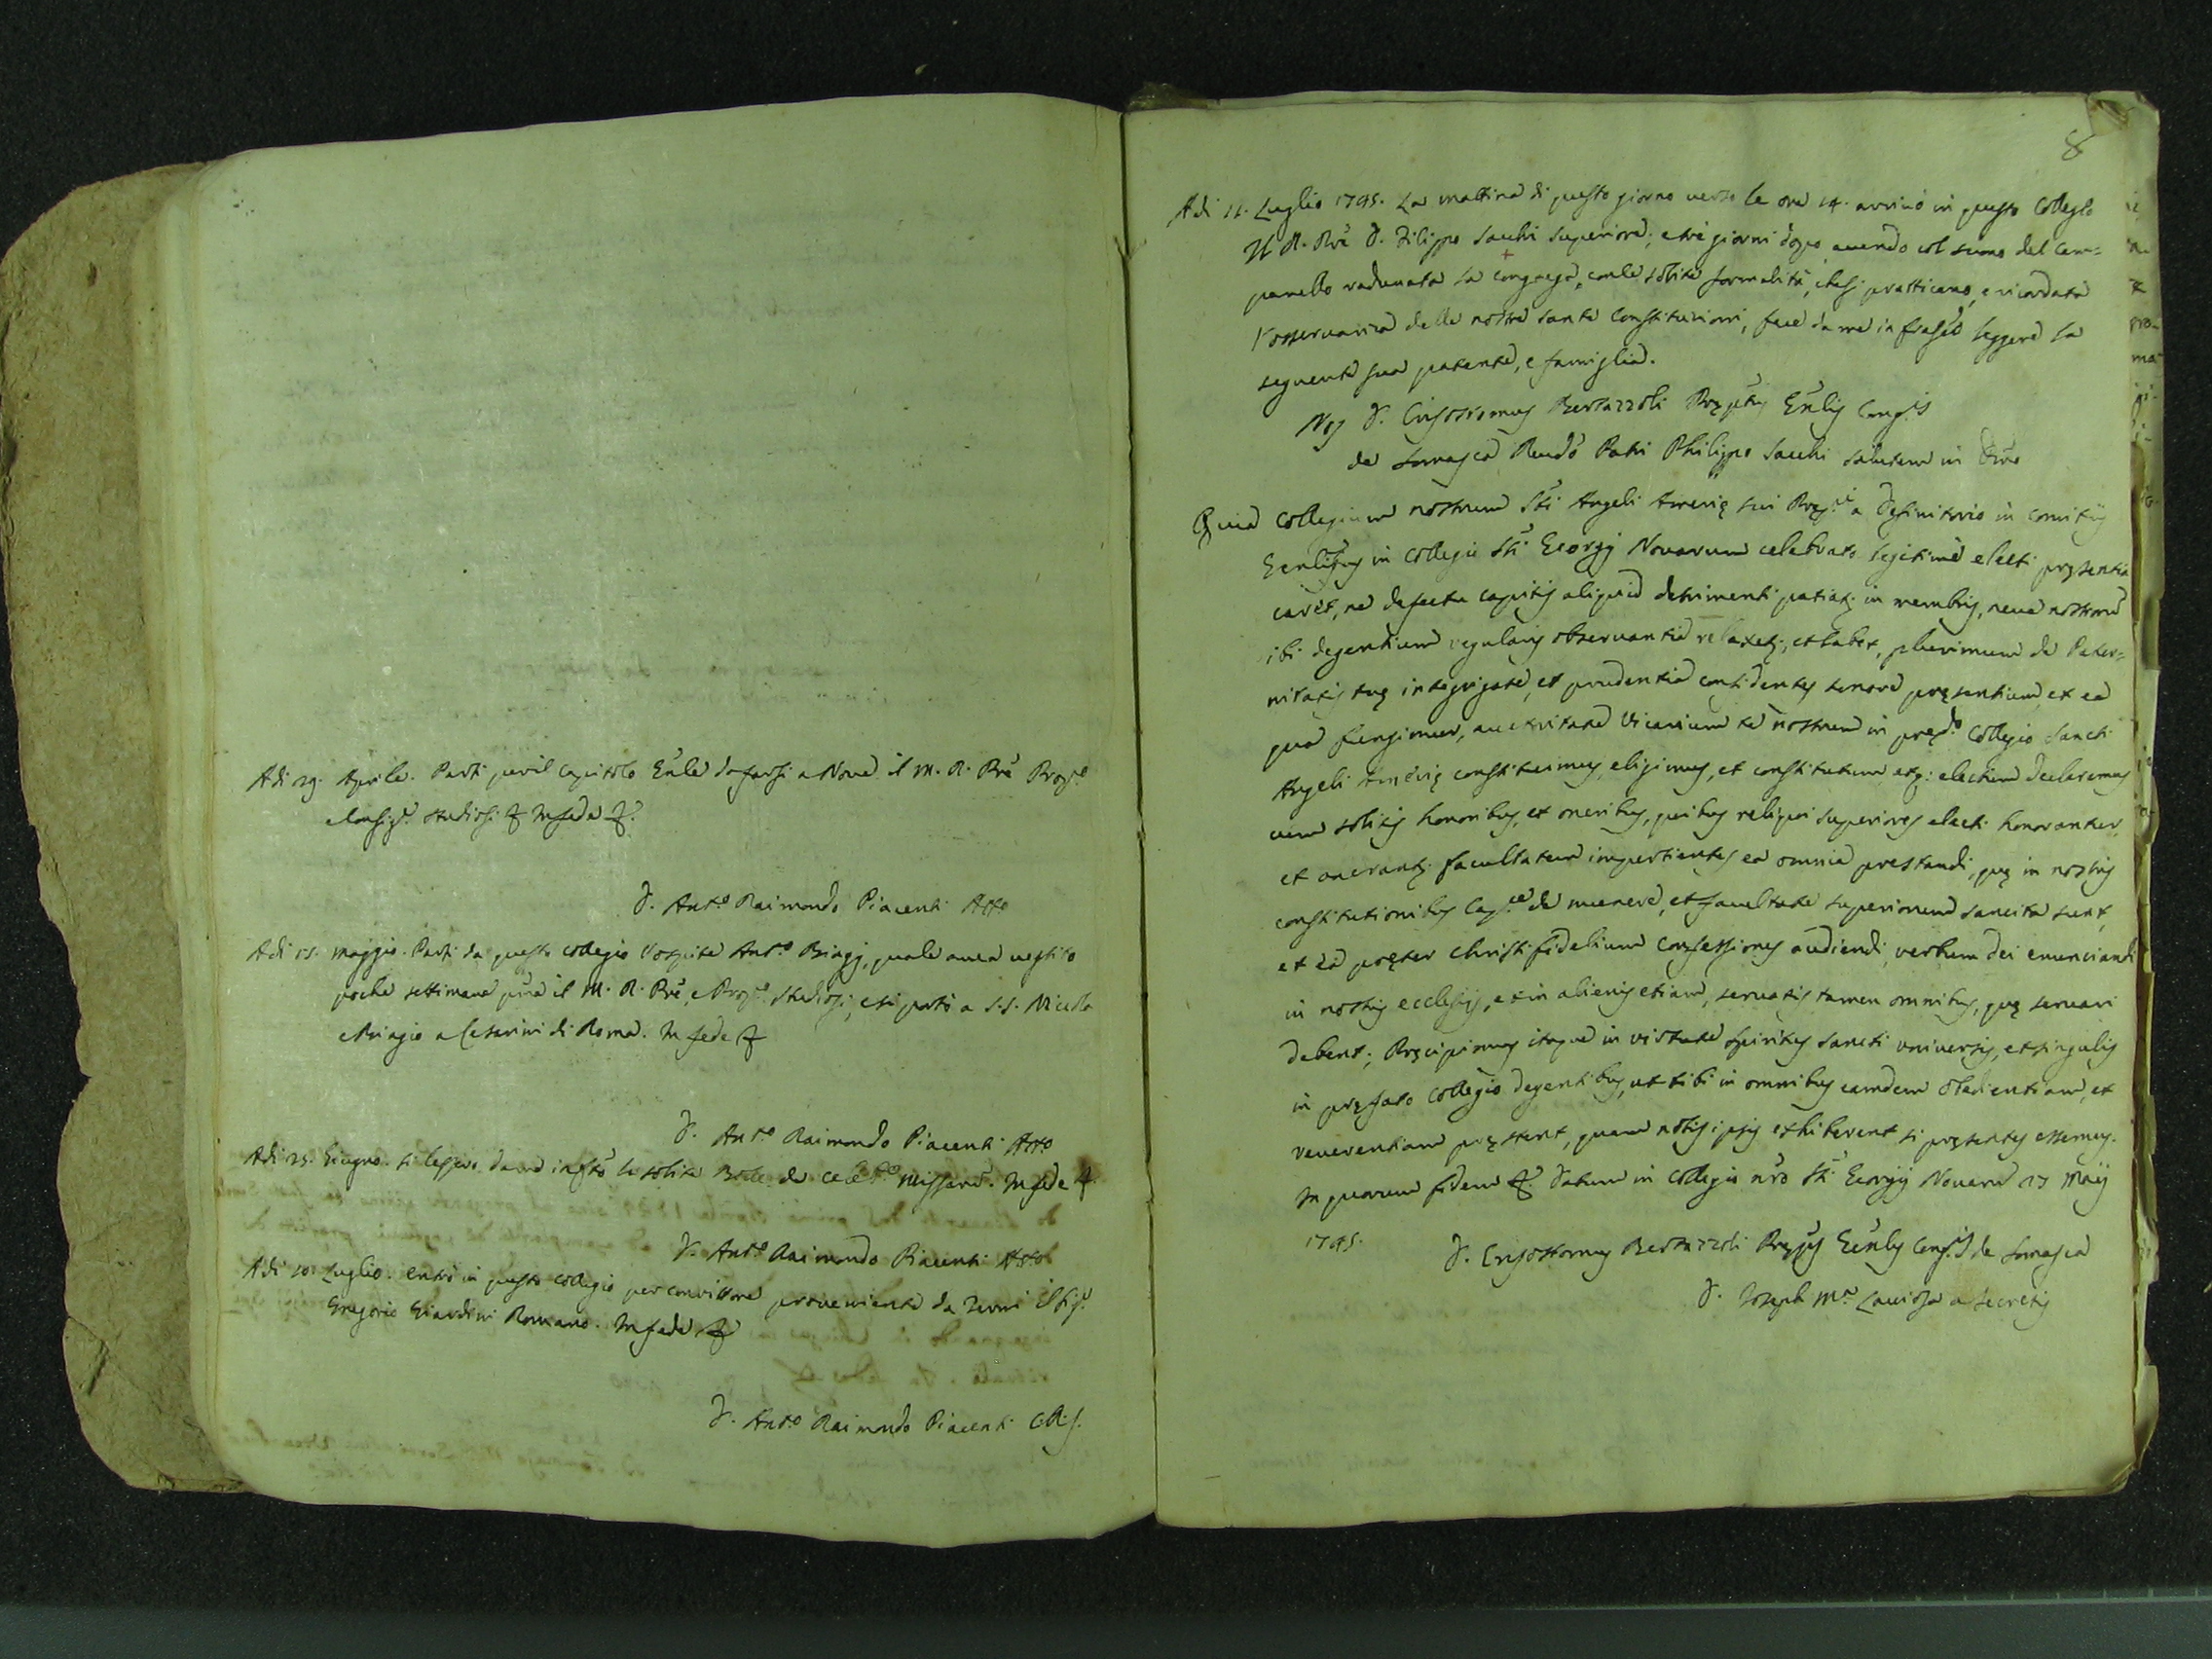 Adi 29. Aprile. Partì per il Capitolo Gn̄le da farsi a Nova il M. R. Prē Propto
e Consigre Studiosi &. In fede &.
D. Anto Raimondo Piacenti Atto
Adi 15. Maggio. Partì da questo Collegio l'ospite Anto Biagj, quale avea vestito
poche settimane p̄ma il M. R. Prē, e Propto Studiosi; e si portò a S.S. Nicola
e Biagio a Cesarini di Roma. In fede &
D. Anto Raimondo Piacenti Atto
Adi 25. Giugno. Si lessero da me infr̄to le solite Bolle de Missarum. In fede &.
D. Anto Raimondo Piacenti Atto
Adi 10. Luglio. Entrò in questo Collegio per convittore proveniente da Terni il Sigr
Gregorio Giardini Romano. In fede &
D. Anto Raimondo Piacenti C.R.S.
8
Adi 11. Luglio 1745. La mattina di questo giorno verso le ore 14. arrivò in questo Collegio
Il R. Prē D. Filippo Sacchi Superiore; e tre giorni dopo avendo col suono del Cam=
panello radunata la Congrega, con le solite formalità, che si praticano, e ricordata
l'osservanza delle nostre sante Constituzioni, fece da me infrascto leggere la
seguente sua patente, e famiglia.
Nos D. Crisostomus Bertazzoli Præptus Gn̄lis Congnis
de Somasca Rendo Patri Philippo Sacchi salutem in Dn̄o
Quia Collegium nostrum Sti Angeli Ameriæ sui Præpti a Definitorio in comitijs
Gen̄libus in Collegio Sti Georgij Novarum celebrato legitimè electi præsentia
caret, ne defectu capitis aliquid detrimenti patiatr in membris, neve nostrorū
ibi degentium regularis observantia relaxetr, et labet, plurimum de Pater=
nitatis tuæ integritate, et prudentia confidentes tenore præsentium, et ea
qua fungimur, auctoritate Vicarium te nostrum in prædo Collegio Sancti
Angeli Ameriæ constituimus, eligimus, et constitutum atq: electum declaramus
cum solitis honoribus, et oneribus, quibus reliqui superiores electi honorantur,
et onerantr. facultatem impertientes ea omnia prestandi, quæ in nostris
constitutionibus Cap. de munere, et facultate superiorum sancita sunt,
et eā præter Christi fidelium confessiones audiendi, verbum Dei enunciandi
in nostris ecclesijs, et in alienis etiam, servatis tamen omnibus, quæ servari
debent; Præcipimus itaque in virtute spiritus sancti universis, et singulis
in præfato Collegio degentibus, ut tibi in omnibus eamdem obedientiam, et
reverentiam præstent, quam nobis ipsis exhiberent si præsentes essemus.
In quorum fidem &. Datum in Collegio nr̄o Sti Georgij Novarū 23 Maij
1745.
D. Crisostomus Bertazzoli Præptus Gen̄lis Congnis de Somasca
D. Joseph Ma Laviosa a Secretis